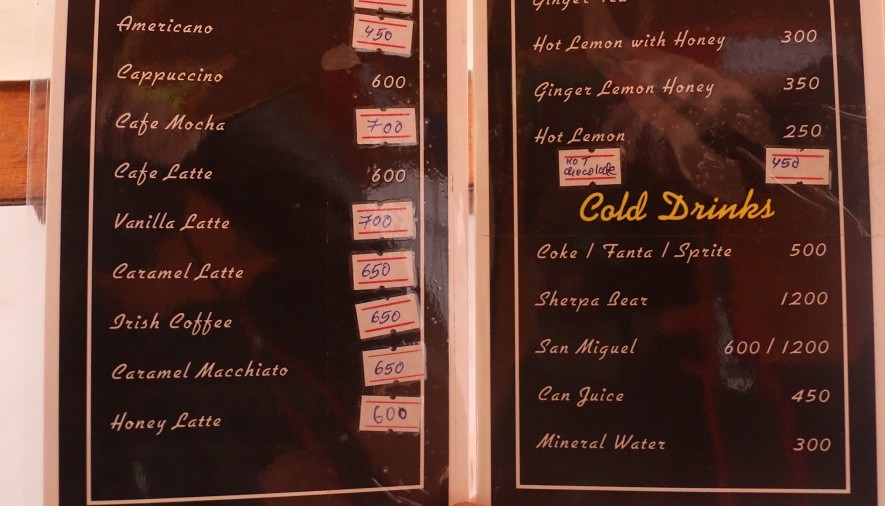 Americano 450
Cappuccino 600
Cafe Mocha 700
Cafe Latte 600
Vanilla Latte 700
Caramel Latte 650
Irish Coffee 650
Caramel Macchiato 650
Honey Latte 600
Ginger Tea
Hot Lemon with Honey 300
Ginger Lemon Honey 350
Hot Lemon 250
HOT chocolate 450
Cold Drinks
Coke / Fanta / Sprite 500
Sherpa Bear 1200
San Miguel 600 / 1200
Can Juice 450
Mineral Water 300